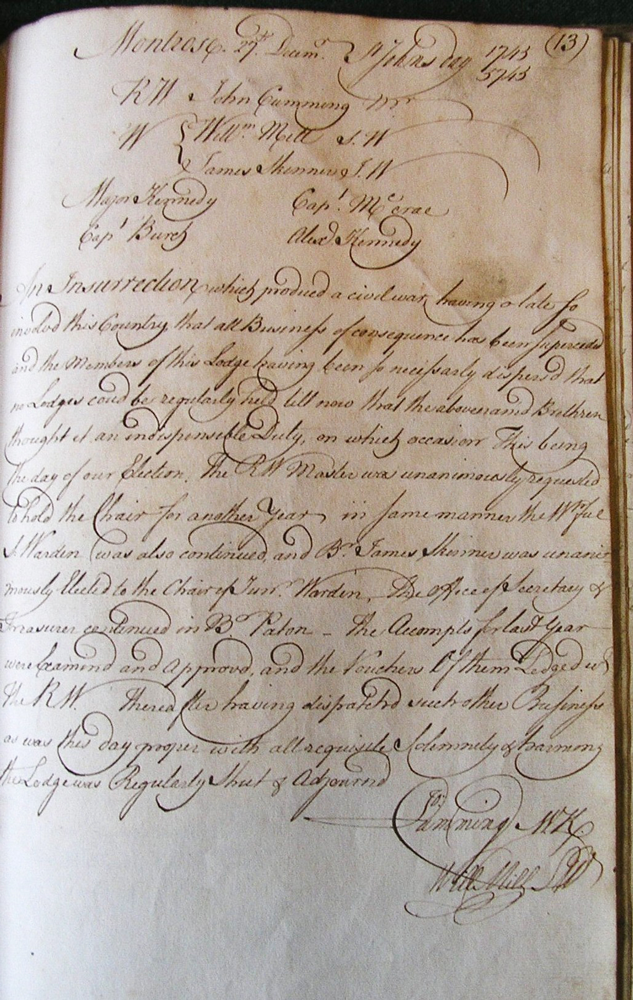 Montrose. 27th. Decemr. St Johns day 1745 (13)
5745
RW John Cumming Mr
W { Willm Mill S.W
James Skinner J.W
Major Kennedy Capt. Mccrae
Capt Burch Alexr Kennedy
An Insurrection which produced a civil war having o late so
involvd this Country that all Business of consequence has been superceded
and the Members of this Lodge having been so necessarly dispersd that
no Lodges coud be regularly held till now that the abovenamd Brethren
thought it an indispensible Duty, on which occasion This being
the day of our Election, The RW Master was unanimously requested
to hold the Chair for another Year in same manner the Wpful
S. Warden was also continued, and Br. James Skinner was unani
mously Elected to the Chair of Junr. Warden, The office of Secretary &
Treasurer continued in Br Paton - The Accompts for last Year
were Examind and Approvd, and the Vouchers Of them Lodged wt
the RW. Thereafter having dispatchd such other Business
as was this day proper with all requisite Solemnity & harmony
the Lodge was Regularly Shut & Adjournd
Jon Cumming
Will Mill SW